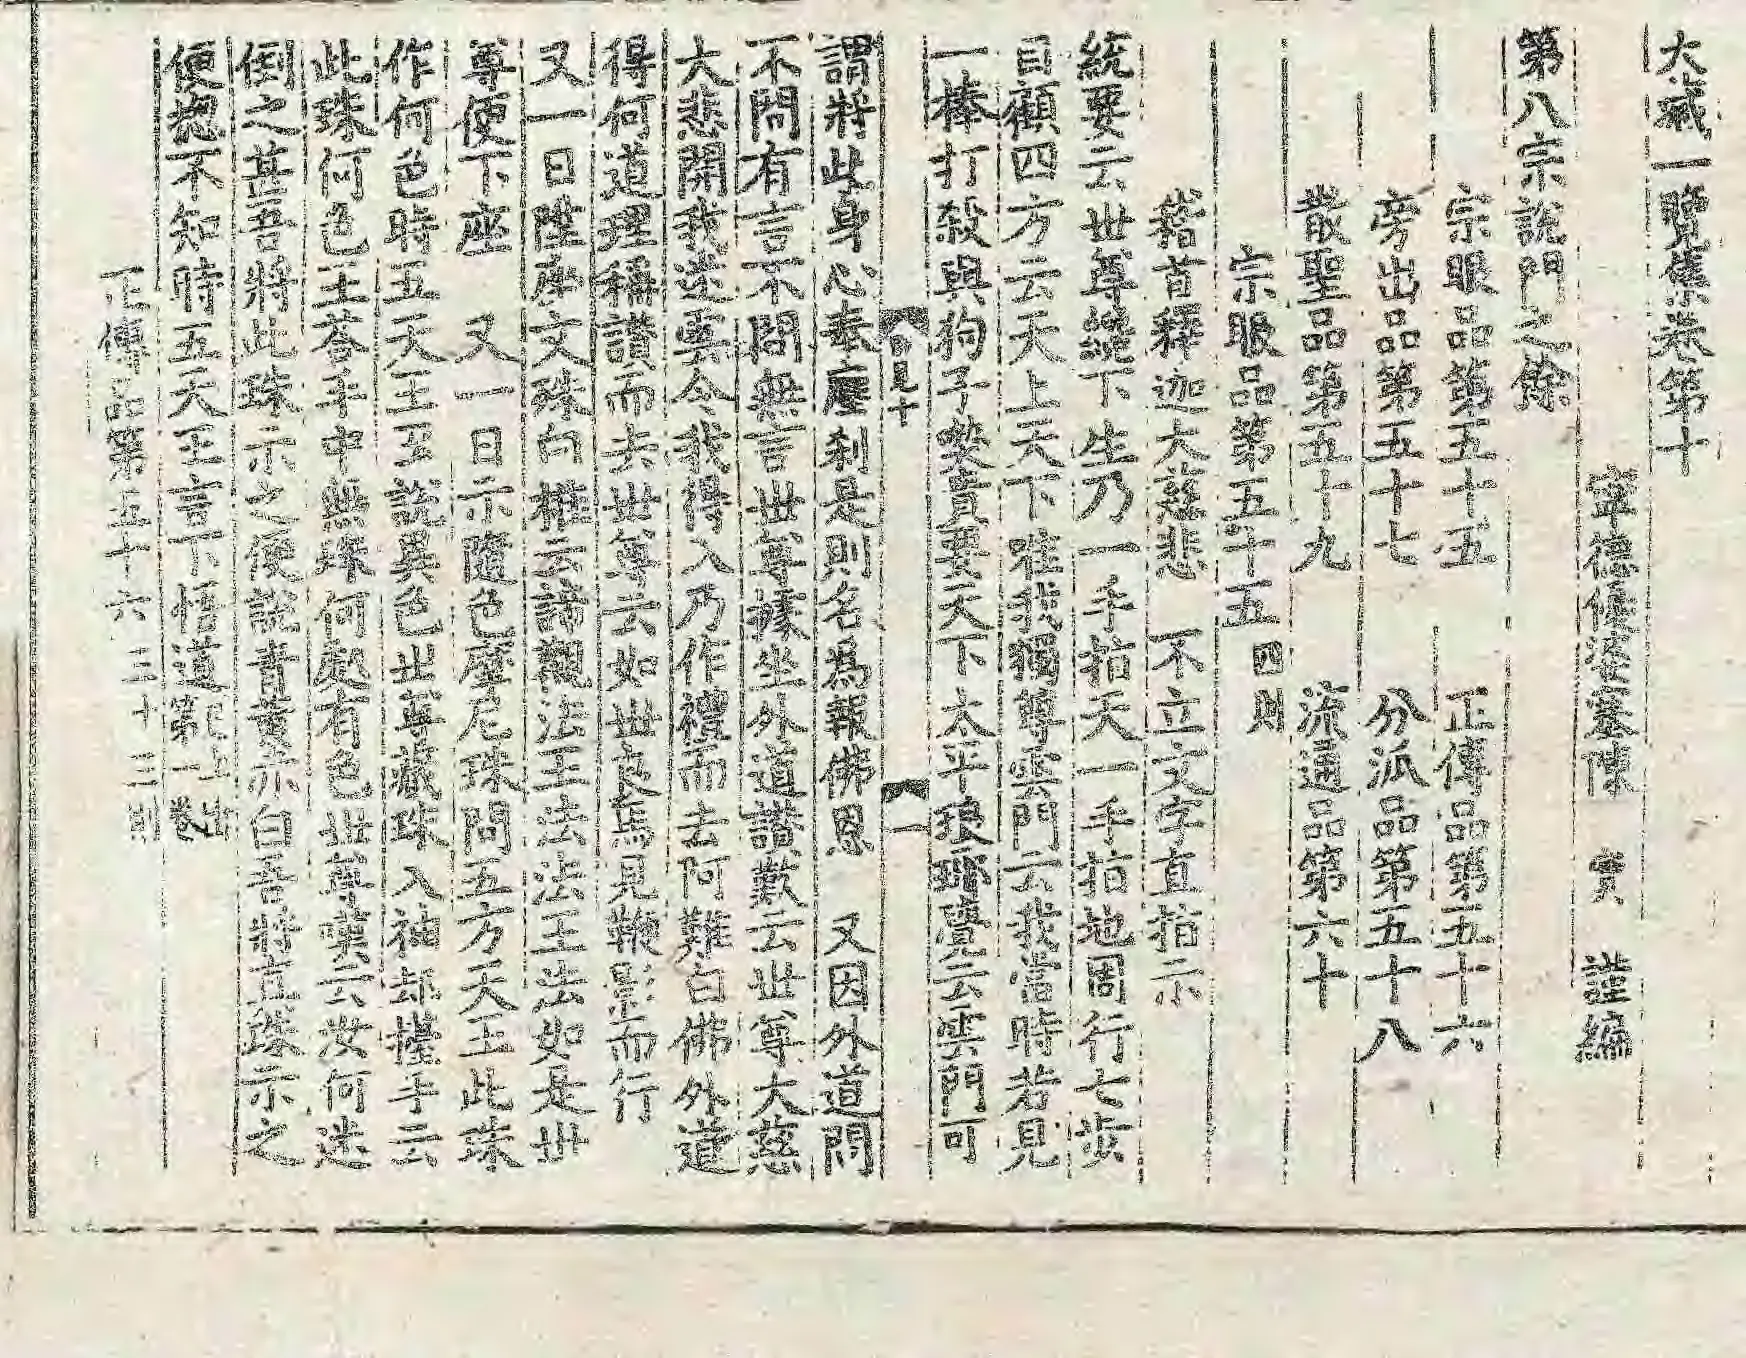 大藏一覽集卷第十
寧德優婆塞陳 實 謹編
第八宗說門之餘
宗眼品第五十五 正傳品第五十六
旁出品第五十七 分派品第五十八
散聖品第五十九 流通品第六十
宗眼品第五十五 四則
稽首釋迦大慈悲 不立文字直指示
統要云世尊纔下生乃一手指天一手指地周行七步
目顧四方云天上天下唯我獨尊雲門云我當時若見
一棒打殺與狗子喫貴要天下太平琅瑘覺云雲門可
見十 一
謂將此身心奉塵刹是則名為報佛恩 又因外道問
不問有言不問無言世尊據坐外道讃歎云世尊大慈
大悲開我迷雲令我得入乃作禮而去阿難白佛外道
得何道理稱讃而去世尊云如世良馬見鞭影而行
又一日陞座文殊白椎云諦觀法王法法王法如是世
尊便下座 又一日示隨色摩尼珠問五方天王此珠
作何色時五天王互說異色世尊藏珠入袖却擡手云
此珠何色王荅手中無珠何處有色世尊嘆云汝何迷
倒之甚吾將此珠示之便說青黃赤白吾將直珠示之
便揔不知時五天王言下悟道 已上出第一卷
正傳品第五十六 三十三則